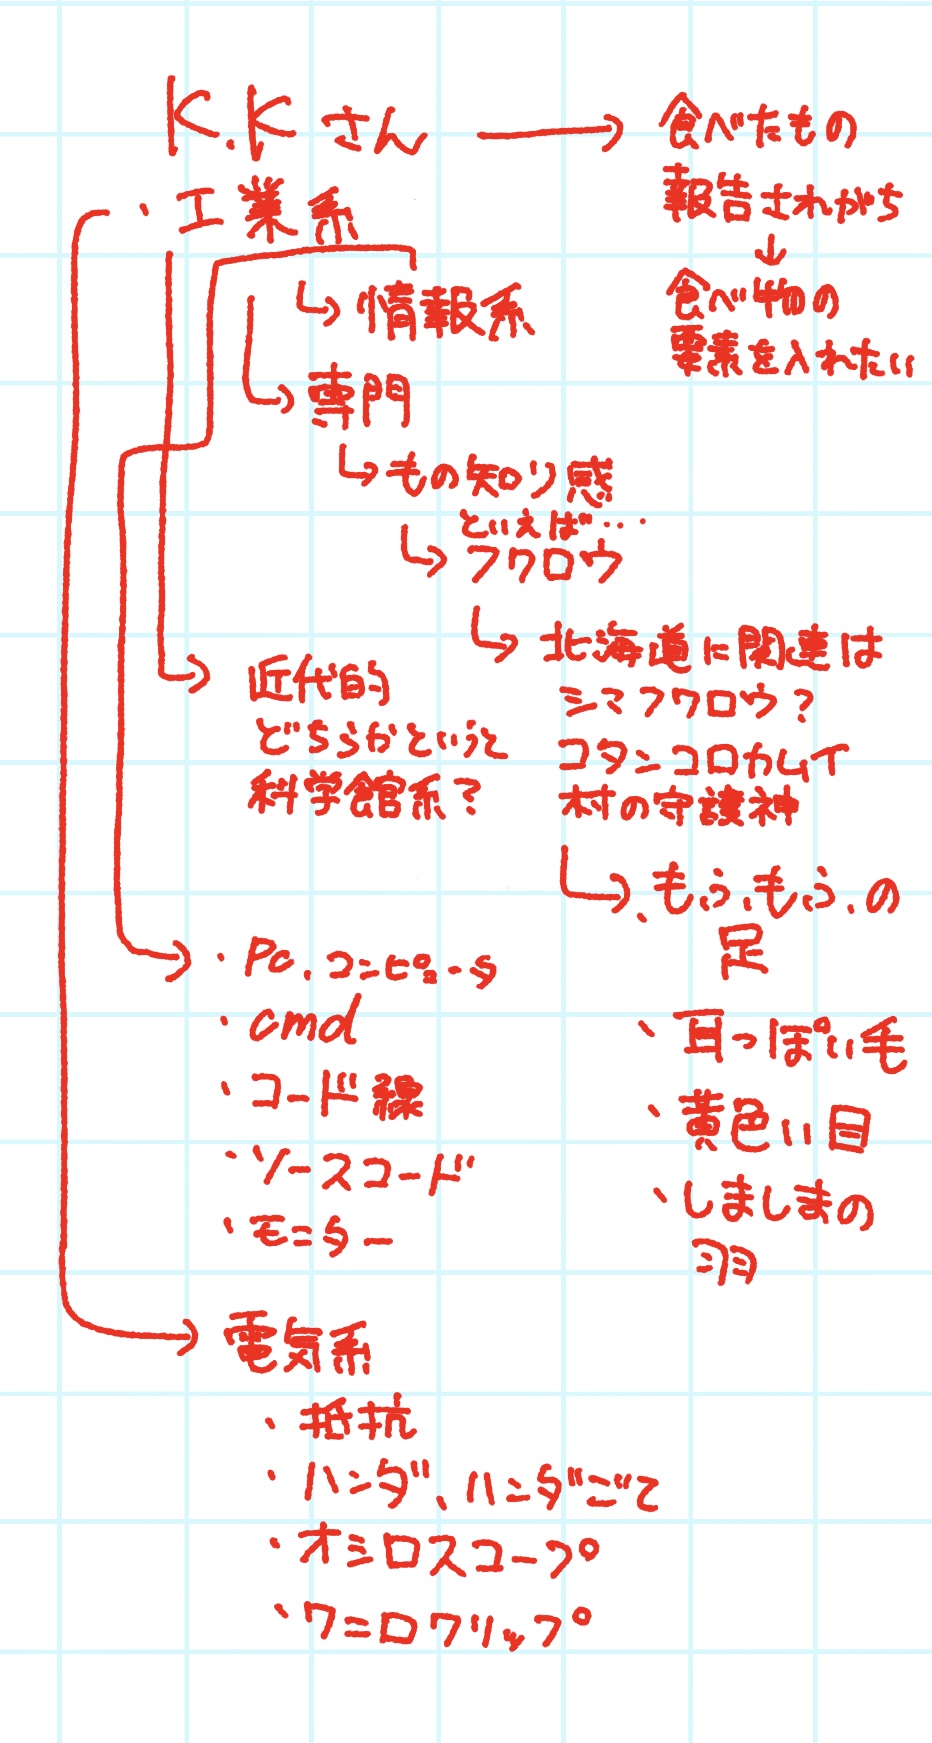 K.Kさん → 食べたもの
報告されがち
↓
食べ物の
要素を入れたい
・工業系
↳ 情報系
↳ 専門
↳ もの知り感
といえば…
↳ フクロウ
↳ 北海道に関連は
シマフクロウ?
コタンコロカムイ
村の守護神
→ 近代的
どちらかというと
科学館系?
→、もふもふの
足
、耳っぽい毛
、黄色い目
、しましまの
羽
→ ・PC、コンピュータ
・cmd
・コード線
・ソースコード
・モニター
→ 電気系
・抵抗
・ハンダ、ハンダごて
・オシロスコープ
・ワニ口クリップ